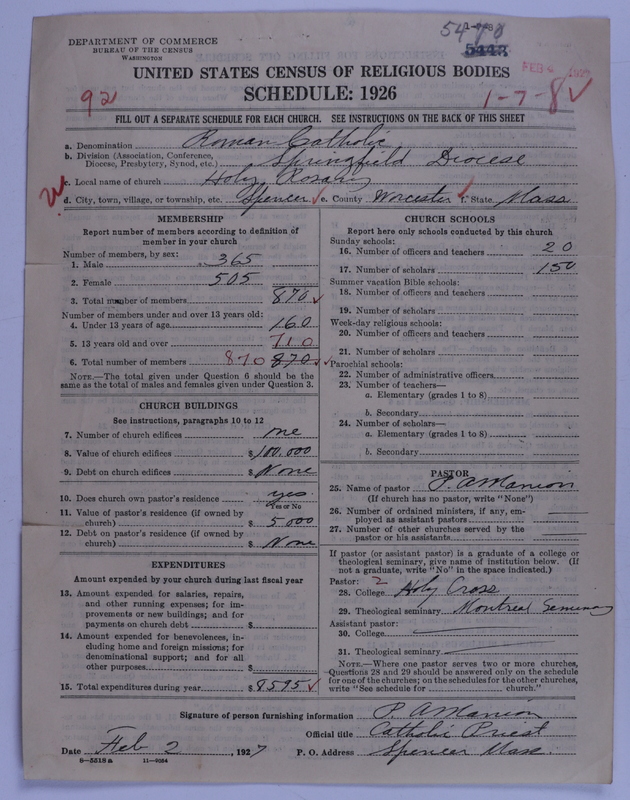 5478
5443
DEPARTMENT OF COMMERCE
BUREAU OF THE CENSUS
WASHINGTON
FEB
UNITED STATES CENSUS OF RELIGIOUS BODIES
SCHEDULE: 1926
92
1-7-8 ✓
FILL OUT A SEPARATE SCHEDULE FOR EACH CHURCH. SEE INSTRUCTIONS ON THE BACK OF THIS SHEET
a. Denomination Roman Catholic
b. Division (Association, Conference, Diocese, Presbytery, Synod, etc.) Springfield Diocese
c. Local name of church Holy Rosary
d. City, town, village, or township, etc. Spencer ✓ e. County Worcester ✓ f. State Mass
MEMBERSHIP
Report number of members according to definition of
member in your church
Number of members, by sex:
1. Male 365
2. Female 505
3. Total number of members 870 ✓
Number of members under and over 13 years old:
4. Under 13 years of age 160
5. 13 years old and over 710
6. Total number of members 870 870 ✓
NOTE.—The total given under Question 6 should be the
same as the total of males and females given under Question 3.
CHURCH BUILDINGS
See instructions, paragraphs 10 to 12
7. Number of church edifices one
8. Value of church edifices $100,000
9. Debt on church edifices $ None
10. Does church own pastor's residence yes
Yes or No
11. Value of pastor's residence (if owned by
church) $ 5000
12. Debt on pastor's residence (if owned by
church) $ None
EXPENDITURES
Amount expended by your church during last fiscal year
13. Amount expended for salaries, repairs,
and other running expenses; for im-
provements or new buildings; and for
payments on church debt $
14. Amount expended for benevolences, in-
cluding home and foreign missions; for
denominational support; and for all
other purposes $
15. Total expenditures during year $ 8595 ✓
CHURCH SCHOOLS
Report here only schools conducted by this church
Sunday schools:
16. Number of officers and teachers 20
17. Number of scholars 150
Summer vacation Bible schools:
18. Number of officers and teachers
19. Number of scholars
Week-day religious schools:
20. Number of officers and teachers
21. Number of scholars
Parochial schools:
22. Number of administrative officers
23. Number of teachers—
a. Elementary (grades 1 to 8)
b. Secondary
24. Number of scholars—
a. Elementary (grades 1 to 8)
b. Secondary
PASTOR
25. Name of pastor P. A. Manion
(If church has no pastor, write "None")
26. Number of ordained ministers, if any, em-
ployed as assistant pastors
27. Number of other churches served by the
pastor or his assistants
If pastor (or assistant pastor) is a graduate of a college or
theological seminary, give name of institution below. (If
not a graduate, write "No" in the space indicated.)
Pastor: 2
28. College Holy Cross
29. Theological seminary Montreal Seminary
Assistant pastor:
30. College
31. Theological seminary
NOTE.—Where one pastor serves two or more churches,
Questions 28 and 29 should be answered only on the schedule
for one of the churches; on the schedules for the other churches,
write "See schedule for church."
Signature of person furnishing information P. A. Manion
Official title Catholic Priest
Date Feb 2, 1927 P. O. Address Spencer Mass.
8-5518a 11-9054